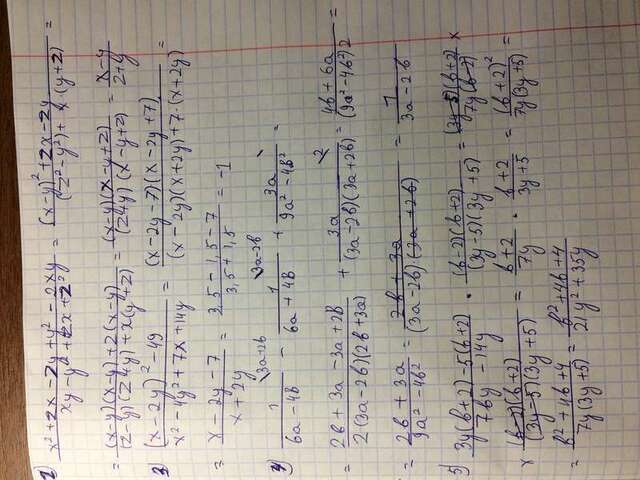 2) (x² + zx - zy + y² - 2xy)/(xy - y² + zx + z²) = ((x-y)² + zx - zy)/((z² - y²) + x·(y+z)) =
= ((x-y)(x-y) + z(x-y))/((z-y)(z+y) + x(y+z)) = ((x-y)(x-y+z))/((z+y)(x-y+z)) = (x-y)/(z+y)
3) ((x-2y)² - 49)/(x² - 4y² + 7x + 14y) = ((x-2y-7)(x-2y+7))/((x-2y)(x+2y) + 7·(x+2y)) =
= (x-2y-7)/(x+2y) = (3,5 - 1,5 - 7)/(3,5 + 1,5) = -1
4) 1\3a+2b/(6a - 4b) - 1\3a-2b/(6a + 4b) + 3a\/(9a² - 4b²) =
= (2b + 3a - 3a + 2b)/(2(3a-2b)(2b+3a)) + 3a\2/((3a-2b)(3a+2b)) = (4b + 6a)/((9a² - 4b²)2) =
= (2b + 3a)/(9a² - 4b²) = (2b + 3a)/((3a-2b)·(3a+2b)) = 1/(3a-2b)
5) (3y(b+2) - 5(b+2))/(7by - 14y) · ((b-2)(b+2))/((3y-5)(3y+5)) = ((3y-5)(b+2))/(7y(b-2)) ×
× ((b-2)(b+2))/((3y-5)(3y+5)) = (b+2)/(7y) · (b+2)/(3y+5) = (b+2)²/(7y(3y+5)) =
= (b² + 4b + 4)/(7y(3y+5)) = (b² + 4b + 4)/(21y² + 35y)